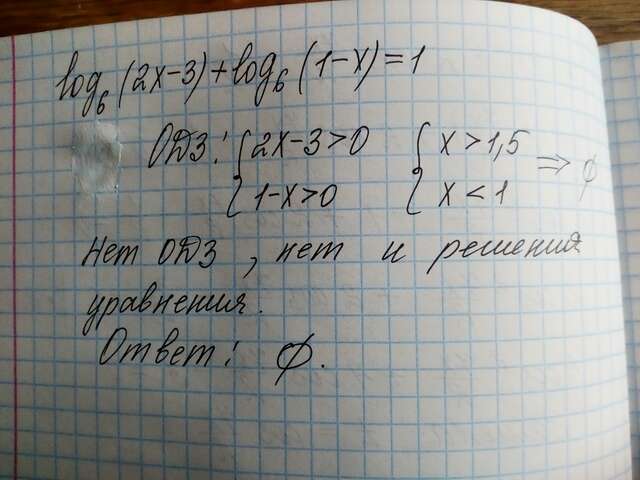 log₆(2x-3)+log₆(1-x)=1
ОДЗ: { 2x-3>0 { x>1,5 ⇒ ∅
1-x>0 x<1
Нет ОДЗ, нет и решения
уравнения.
Ответ: ∅.